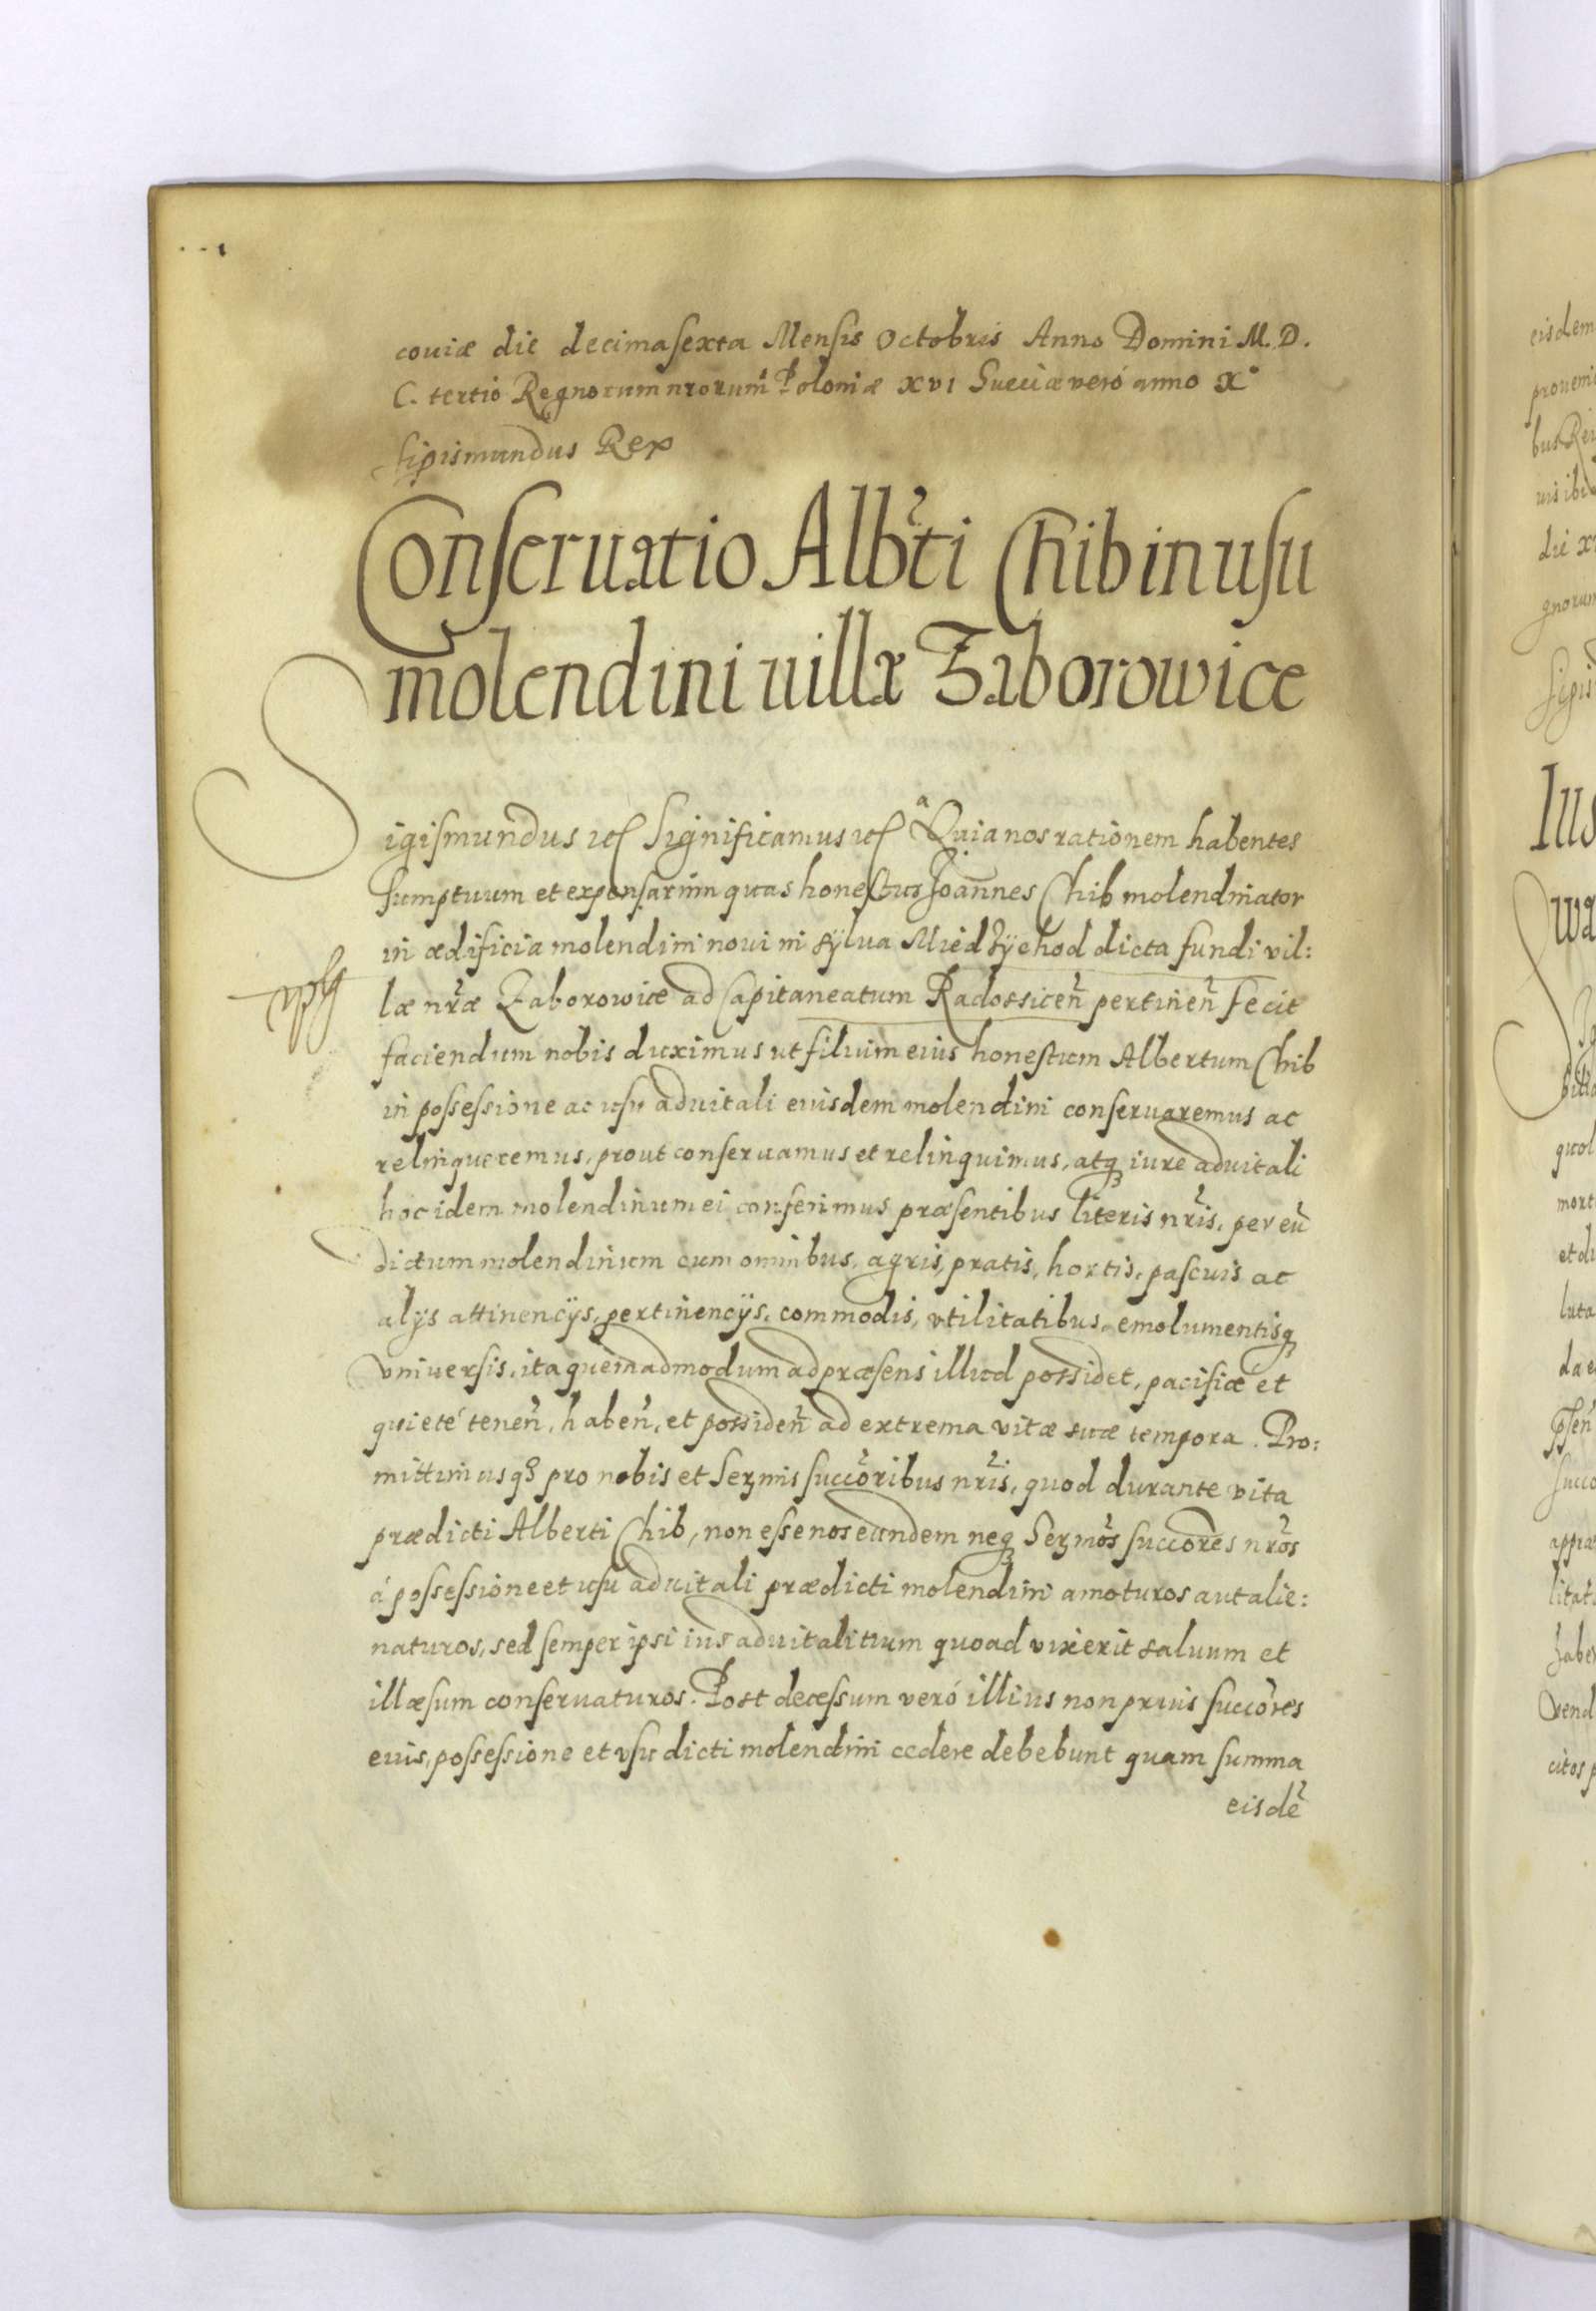 coviæ die decimasexta Mensis Octobris Anno Domini M.D.
C. tertio Regnorum nrorum Poloniæ XVI Sueciæ veró anno X°
Sigismundus Rex
Conseruatio Albti Chib in usu
molendini villæ Zaborowice
Sigismundus etc Significamus etc Quia nos rationem habentes
sumptuum et expensarum quas honestus Joannes Chib molendinator
in ædificia molendini noui in sylua Miedzÿchod dicta fundi vil:
læ nræ Zaborowice ad Capitaneatum Radossicen pertinen fecit
faciendum nobis duximus ut filium eius honestum Albertum Chib
in possessione ac usu aduitali eiusdem molendini conseruaremus ac
relinqueremus, prout conseruamus et relinquimus, atq iure aduitali
hoc idem molendinum ei conferimus præsentibus literis nris, per eū
dictum molendinum cum omnibus, agris, pratis, hortis, pascuis ac
alÿs attinencÿs, pertinencÿs, commodis, vtilitatibus, emolumentisq
vniuersis, ita quemadmodum ad præsens illud possidet, pacificæ et
quieté tenen, haben, et possiden ad extrema vitæ suæ tempora. Pro:
mittimusq pro nobis et Sermis succoribus nris, quod durante vita
prædicti Alberti Chib, non esse nos eundem neq Sermos succores nros
á possessione et usu aduitali prædicti molendini amoturos aut alie:
naturos, sed semper ipsi ius aduitalitium quoad vixerit saluum et
illæsum conseruaturos. Post decessum veró illius non prius succores
eius, possessione et vsu dicti molendini cedere debebunt quam summa
eisdē